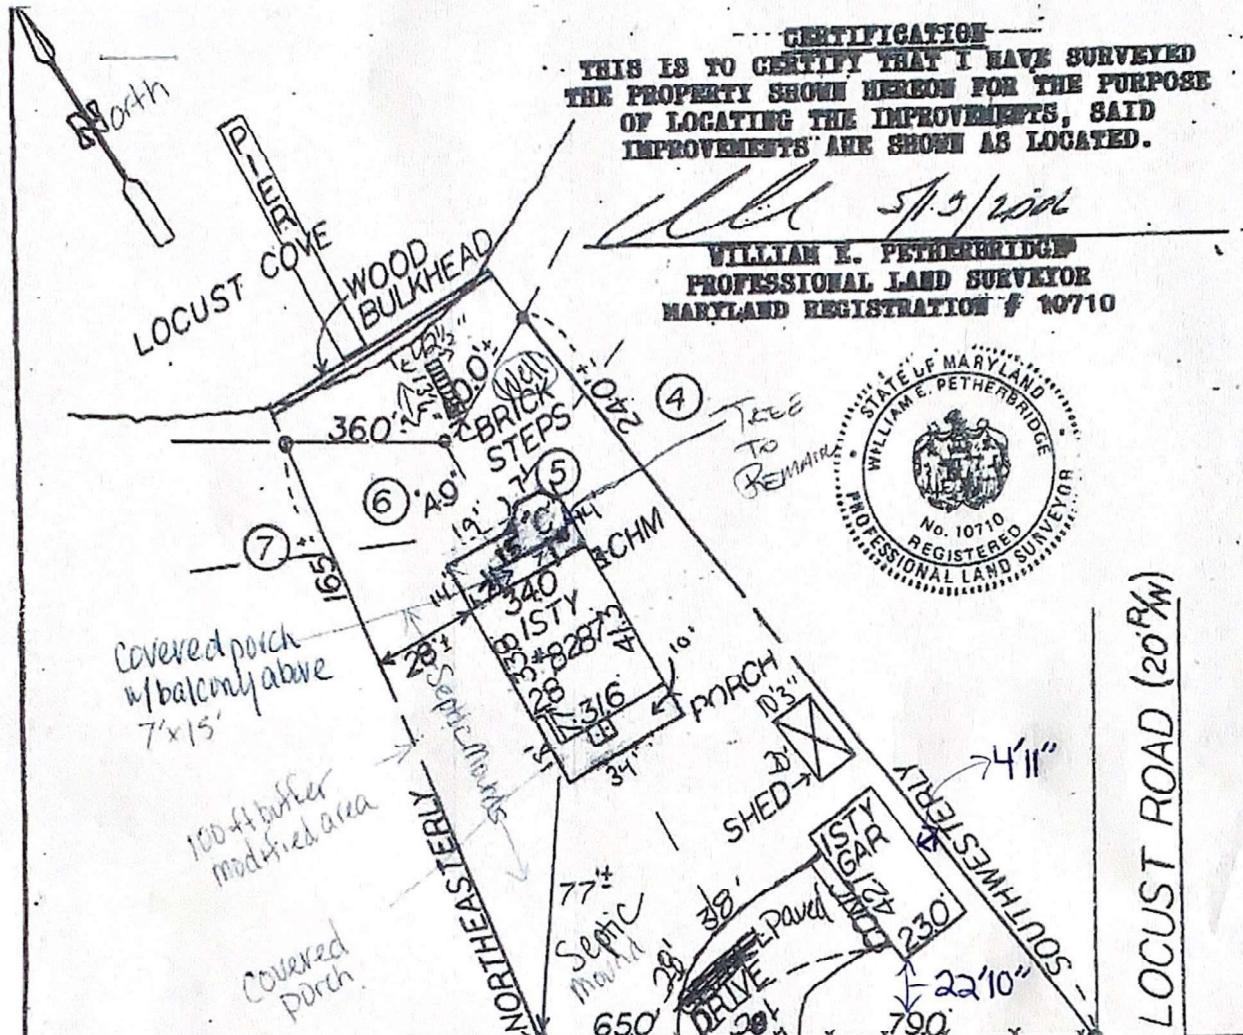 CERTIFICATION
THIS IS TO CERTIFY THAT I HAVE SURVEYED
THE PROPERTY SHOWN HEREON FOR THE PURPOSE
OF LOCATING THE IMPROVEMENTS, SAID
IMPROVEMENTS ARE SHOWN AS LOCATED.
WILLIAM E. PETHERBRIDGE
PROFESSIONAL LAND SURVEYOR
MARYLAND REGISTRATION # 10710
STATE OF MARYLAND
WILLIAM E. PETHERBRIDGE
No. 10710
REGISTERED
PROFESSIONAL LAND SURVEYOR
North
PIER
LOCUST COVE
WOOD
BULKHEAD
Well
BRICK
STEPS
360'
240'±
4
TREE
TO
REMAIN
5
6
"AO"
7
165'±
19'
"C"
14'
CHM
14'
340
1STY
#8287
413
28'±
28
316
10'
PORCH
34'
Covered porch
w/balcony above
7'x15'
Septic mounds
100 ft buffer
modified area
Covered
porch
10'3"
SHED
4'11"
1STY
GAR
421
230'
22'10"
77'±
Septic
mound
38'
Paved
DRIVE
650'
790'
NORTHEASTERLY
SOUTHWESTERLY
LOCUST ROAD (20' R/W)